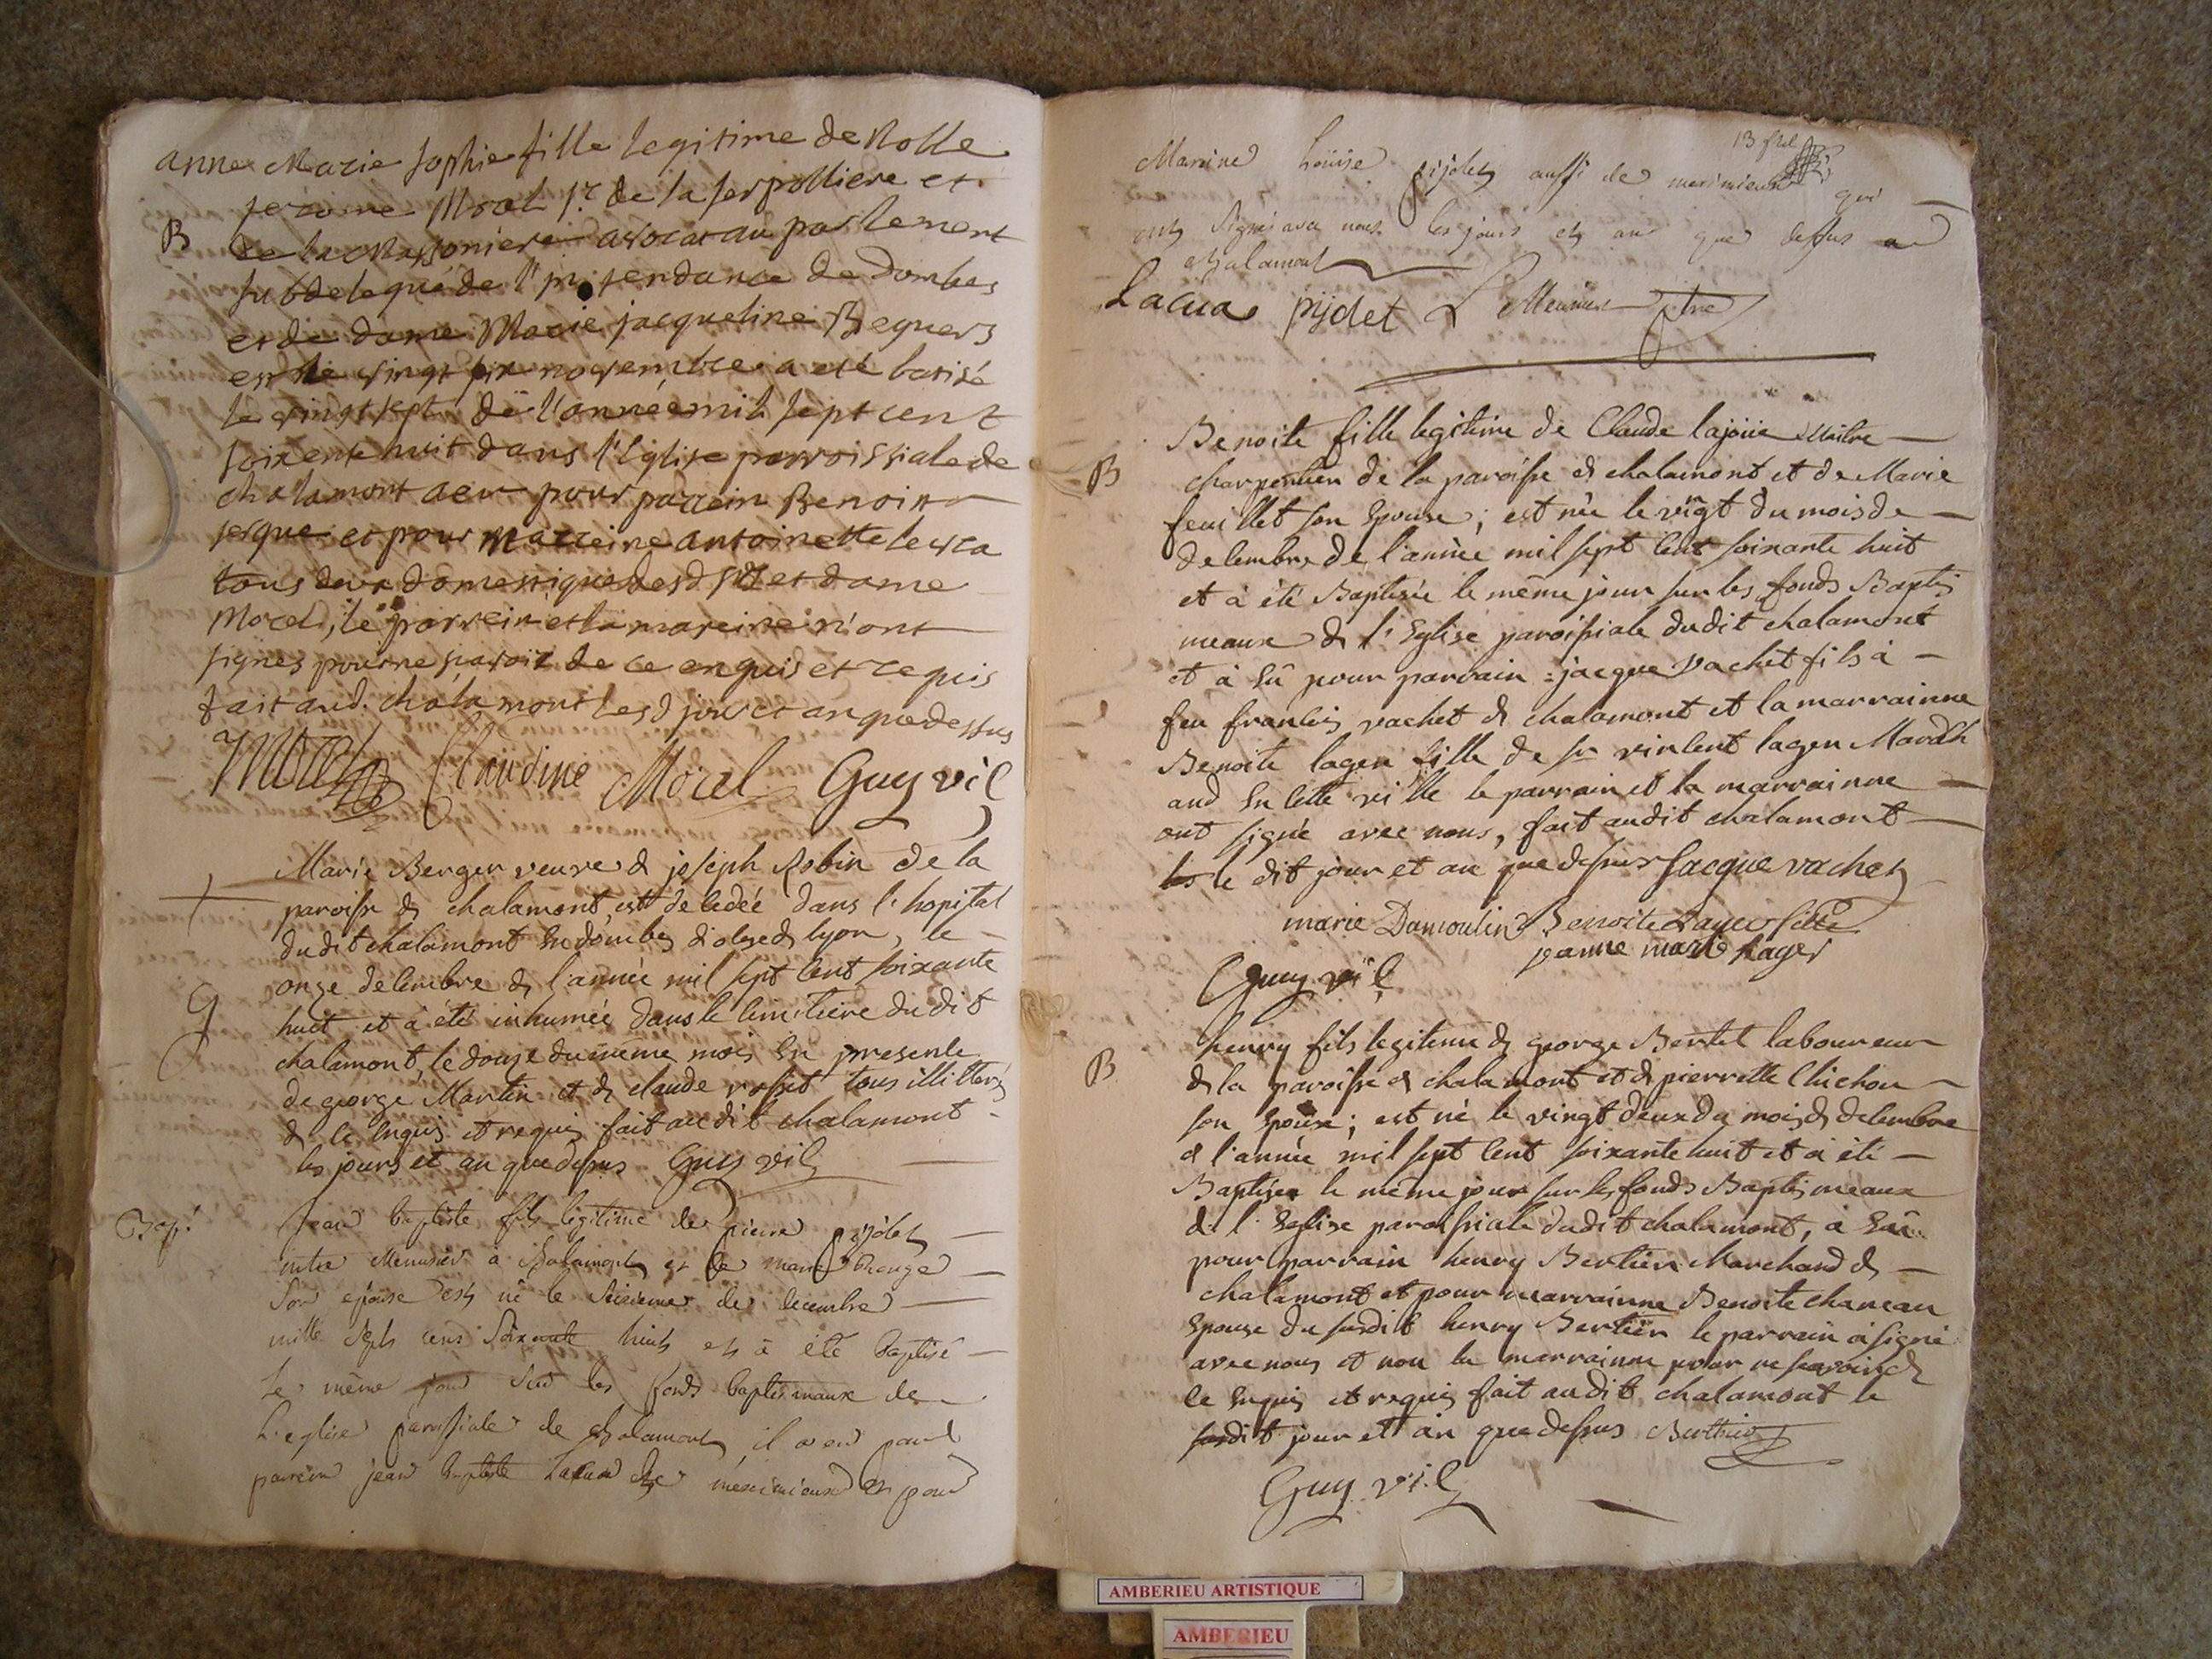 anne Marie Sophie fille legitime de Noble
jerome Morel Sr de la serpolliere et
B
de la Massoniere avocat au parlement
subdelegué de l'intendance de Dombes
et de dame Marie jacqueline Beguers
est née vingt six novembre a eté batisé
le vingt sept de l'année mil sept cent
soixente huit dans l'Eglise parroissiale de
chalamont a eu pour parrein Benoit
jesque et pour marreine antoinette
tous deux domestiques desd sr et dame
Morel, le parrein et la mareine n'ont
signes pour ne savoir de ce enquis et requis
fait aud. chalamont lesd jour et an que dessus
Morel Claudine Morel Guy vic
Marie Berger veuve de joseph Robin de la
paroisse de chalamont, est decedée dans l'hopital
dudit chalamont en dombes diocese de lyon, le
onze decembre de l'année mil sept cent soixante
G
huit et à été inhumée dans le cimetiere dudit
chalamont, le douze du même mois en presence
de george Martin et de claude tous illitterés
de ce enquis et requis fait audit chalamont
les jours et an que dessus Guy vic
Bap.
Jean baptiste fils legitime de pierre pijolet
mtre Menusier à Chalamont et de marie
Son epouse est né le Seizieme de decembre
mille Sept cens Soixante huit et à été baptisé
Le même jour Sur les fonds baptismaux de
L'eglise paroissiale de Chalamont il a eu pour
parrein jean baptiste Lacua de meximieux et pour
13 fuel
Mareine Loüise pijolet aussi de meximieux qui
ont Signé avec nous les jours et an que dessus a
chalamont
Lacua pijolet L Meunier ptre
Benoite fille legitime de Claude lajoüe Maitre
B
charpentier de la paroisse de chalamont et de Marie
feuillet son Epouse; est née le vingt du mois de
decembre de l'année mil sept cent soixante huit
et à été Baptisée le même jour sur les fonds Baptis
meaux de l'Eglise paroissiale dudit chalamont
et à Eû pour parrain jacque Vachet fils à
feu francois vachet de chalamont et la marrainne
Benoite lager fille de sr vincent lager March
and En cette ville le parrain et la marrainne
ont signé avec nous, fait audit chalamont
les le dit jour et an que dessus Jacque vachet
marie Damoulin Benoite Lager fille
jeanne marie Lager
Guy vic
henry fils legitime de george Bertet laboureur
B
de la paroisse de chalamont et de pierrette Chichon
son Epouse; est né le vingt deux du mois de decembre
de l'année mil sept cent soixante huit et à été
Baptisé le même jour sur les fonds Baptismeaux
de l'Eglise paroissiale dudit chalamont, à Eû
pour parrain henry Bertier Marchand de
chalamont et pour marrainne Benoite
Epouse du susdit henry Bertier le parrain à signé
avec nous et non la marrainne pour ne savoir de
ce Enquis et requis fait audit chalamont le
susdit jour et an que dessus Berthier
Guy vic
AMBERIEU ARTISTIQUE
AMBERIEU